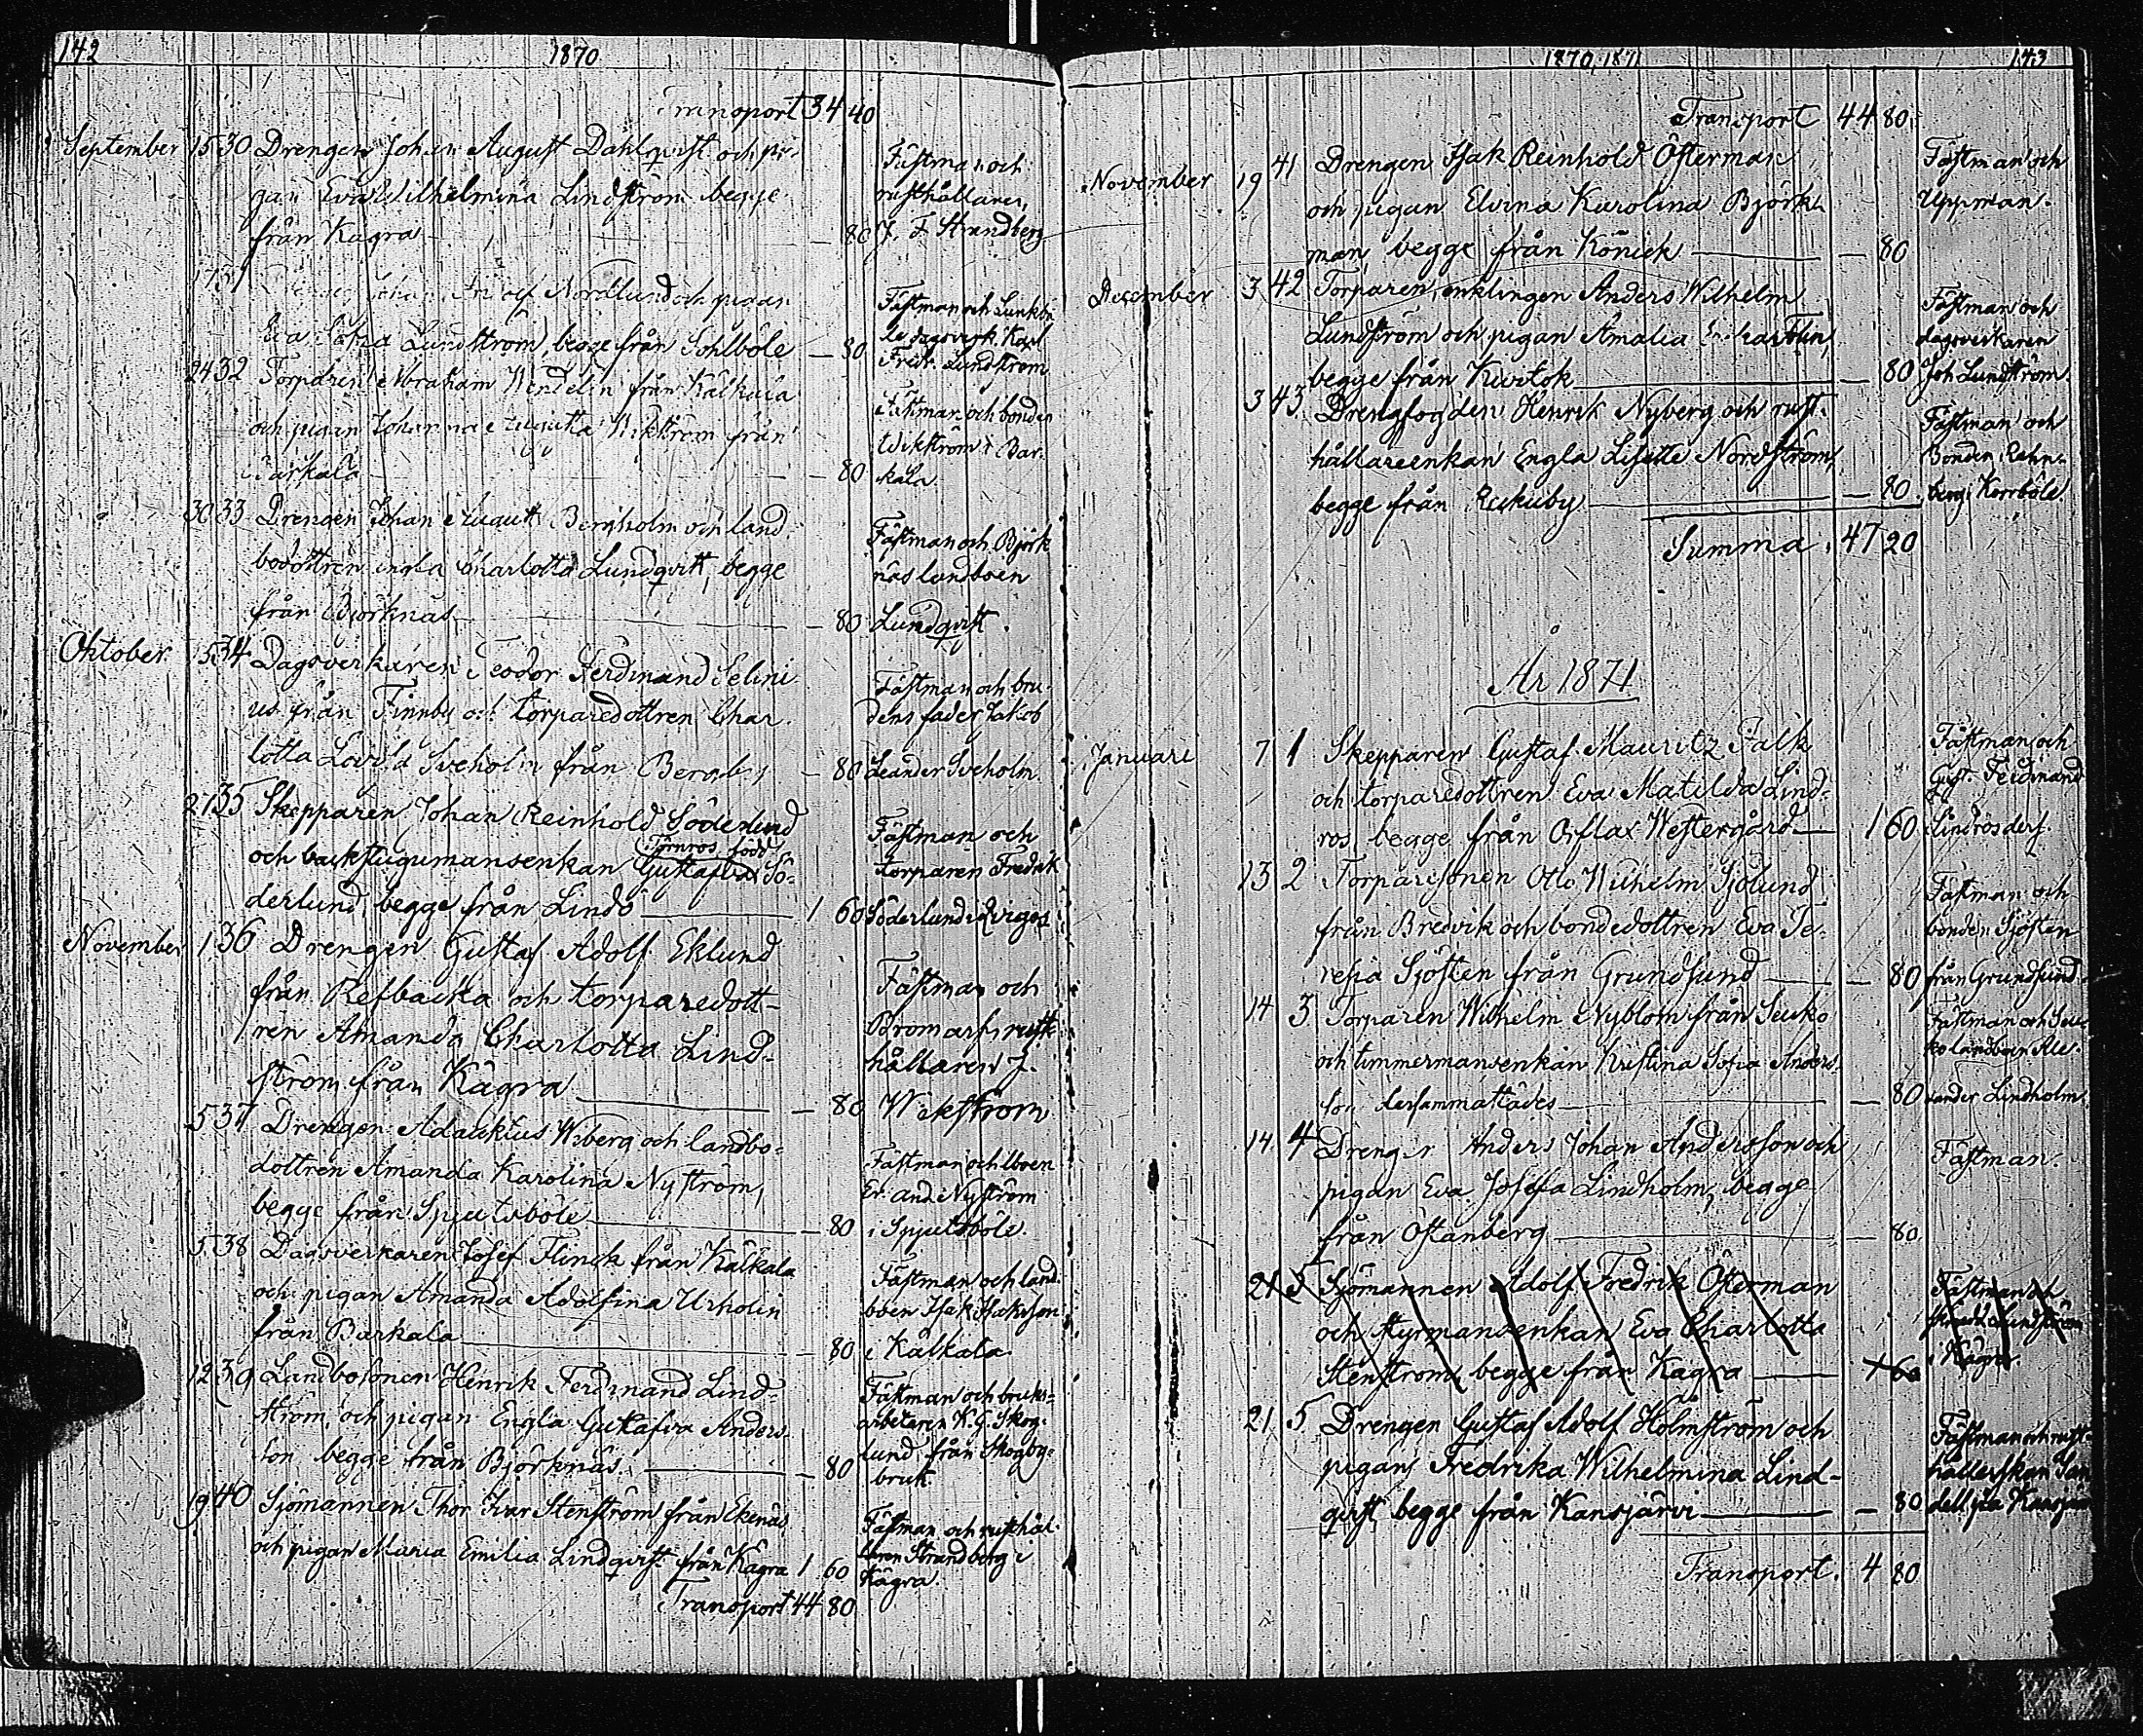 142
1870
Transport 34 40
September 15 30 Drengen Johan August Dahlqvist och pi-
gan Eva Wilhelmina Lindström begge
från Kagra — 80
Fästman och
rusthållaren
J. F. Strandberg
17 31 Johan Nordlund och pigan
Eva Sofia Lundström, begge från Sohlböle — 80
Fästman och Lunkbö-
le dagsverk. Karl
Fredr. Lundström
24 32 Torparen Abraham Wendelin från Kålkala
och pigan Johanna Augusta Wikström från
Barkala — 80
Fästman och bonden
Wikström i Bar-
kala
30 33 Drengen Johan August Bergholm och land-
bodottren Engla Charlotta Lundqvist, begge
från Björknäs — 80
Fästman och Björk
näs landboen
Lundqvist.
Oktober 15 34 Dagsverkaren Teodor Ferdinand Selini-
us från Finnby och torparedottren Char-
lotta Lovisa Sveholm från Bergby — 80
Fästman och bru-
dens fader Jakob
Leander Sveholm.
27 35 Skepparen Johan Reinhold Söderlund
Törnros född
och backstugumansenkan Gustafva Sö-
derlund, begge från Lindö — 1 60
Fästman och
torparen Fredrik
Söderlund
November 1 36 Drengen Gustaf Adolf Eklund
från Refbacka och torparedott-
ren Amanda Charlotta Lind-
ström från Kagra — 80
Fästman och
Bromarfs rust-
hållaren J.
Wikström
5 37 Drengen Adauktus Wiberg och landbo-
dottren Amanda Karolina Nyström,
begge från Spjutsböle — 80
Fästman och lboen
Er. And. Nyström
i Spjutsböle.
5 38 Dagsverkaren Josef Flinck från Kålkala
och pigan Amanda Adolfina Urholin
från Barkala — 80
Fästman och land-
boen Isak Isaksson
i Kålkala.
12 39 Landbosonen Henrik Ferdinand Lind-
ström och pigan Engla Gustafva Anders-
son begge från Björknäs — 80
Fästman och bruks-
arbetaren K. G. Skog-
lund från Skogby-
bruk.
19 40 Sjömannen Thor Ivar Stenström från Ekenäs
och pigan Maria Emilia Lindqvist från Kagra 1 60
Fästman och rusthål-
laren Strandberg i
Kagra.
Transport 44 80
1870, 1871
143
Transport 44 80
November 19 41 Drengen Isak Reinhold Österman
och pigan Elvina Karolina Björk-
man begge från Könick — 80
Fästman och
Uppman.
December 3 42 Torparen, enklingen Anders Wilhelm
Lundström och pigan Amalia
begge från Kurtok — 80
Fästman och
dagsverkaren
Joh Lundström.
3 43 Drengfogden Henrik Nyberg och rust-
hållareenkan Engla Lisette Nordström,
begge från Rekuby — 80
Fästman och
Bonden Rehn-
berg i Korrböle.
Summa. 47 20
År 1871
Januari 7 1 Skepparen Gustaf Mauritz Falk
och torparedottren Eva Matilda Lind-
ros, begge från Orslax Westergård — 1 60
Fästman och
Gust. Ferdinand
Lindros ders.
13 2 Torparesonen Otto Wilhelm Sjölund
från Bredvik och bondedottren Eva Te-
resia Sjösten från Grundsund — 80
Fästman och
bonden Sjösten
från Grundsund
14 3 Torparen Wilhelm Nyblom från Seuko
och timmermansenkan Kristina Sofia Anders-
son dersammastädes — 80
Fästman och Seu-
ko landboen Alex-
ander Lindholm.
14 4 Drengen Anders Johan Andersson och
pigan Eva Josefa Lindholm, begge
från Östanberg — 80
Fästman.
21 5 Sjömannen Adolf Fredrik Österman
och styrmansenkan Eva Charlotta
Stenström, begge från Kagra — 1 60
Fästman och
Lindström
i Kagra.
21 5 Drengen Gustaf Adolf Holmström och
pigan Fredrika Wilhelmina Lind-
qvist, begge från Kansjärvi — 80
Fästman och rust-
hållerskan San-
dell från Kansjärvi
Transport. 4 80